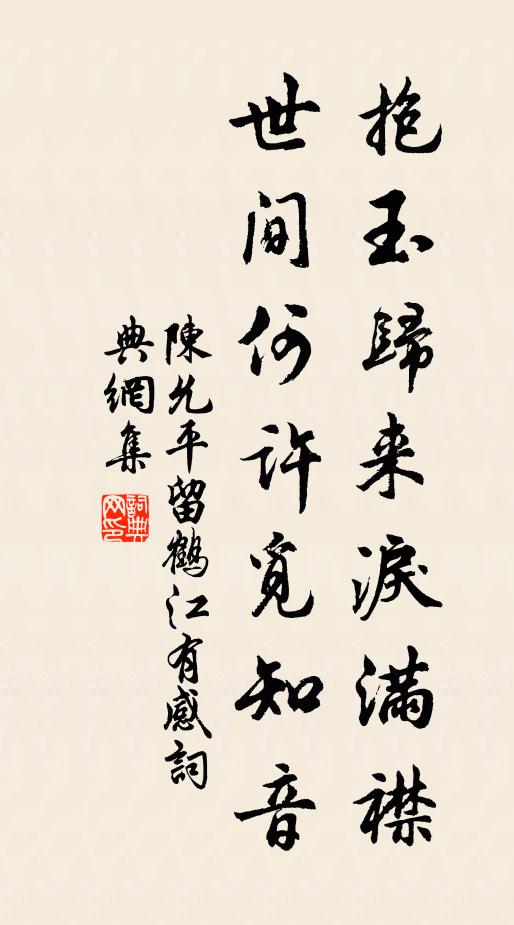 抱玉歸来淚滿襟
世間何許覓知音
陳允平留鶴江有感詞
典網集
詞典網印